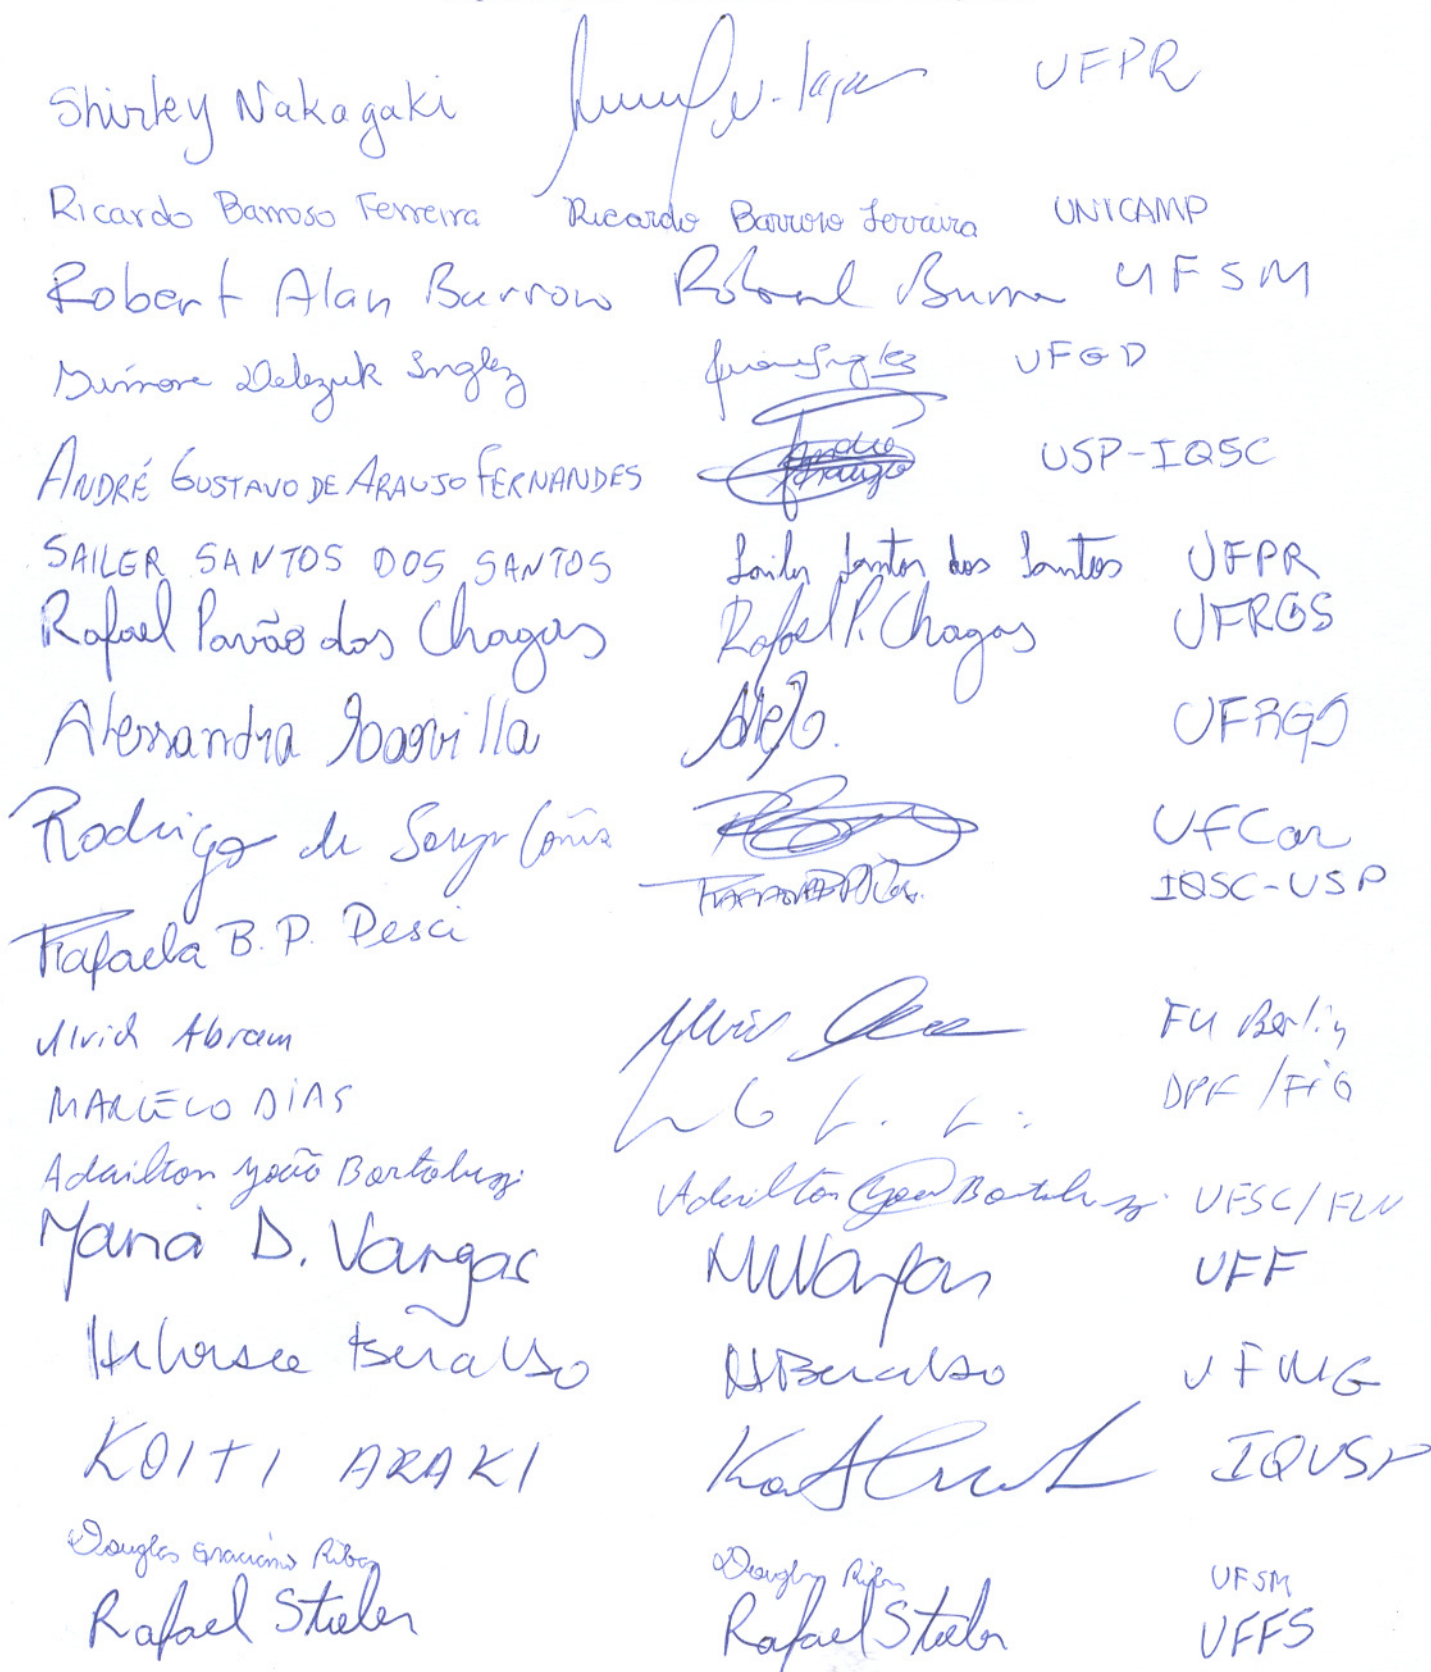 Shirley Nakagaki UFPR
Ricardo Barroso Ferreira Ricardo Barroso Ferreira UNICAMP
Robert Alan Burrow Robert Burrow UFSM
Simone Delezuk Inglez Simone Inglez UFGD
ANDRÉ GUSTAVO DE ARAUJO FERNANDES André Araujo USP-IQSC
SAILER SANTOS DOS SANTOS Sailer Santos dos Santos UFPR
Rafael Pavão das Chagas Rafael P. Chagas UFRGS
Alessandra UFRGS
Rodrigo de Souza Corrêa UFCar
Rafaela B. P. Pesci IQSC-USP
Ulrich Abram FU Berlin
MARCELO DIAS DPF/FIG
Adailton João Bortoluzzi Adailton João Bortoluzzi UFSC/FLN
Maria D. Vargas MDVargas UFF
Heloisa Beraldo HBeraldo UFMG
KOITI ARAKI IQUSP
Douglas Graciano Ribas Douglas Ribas UFSM
Rafael Stieler Rafael Stieler UFFS